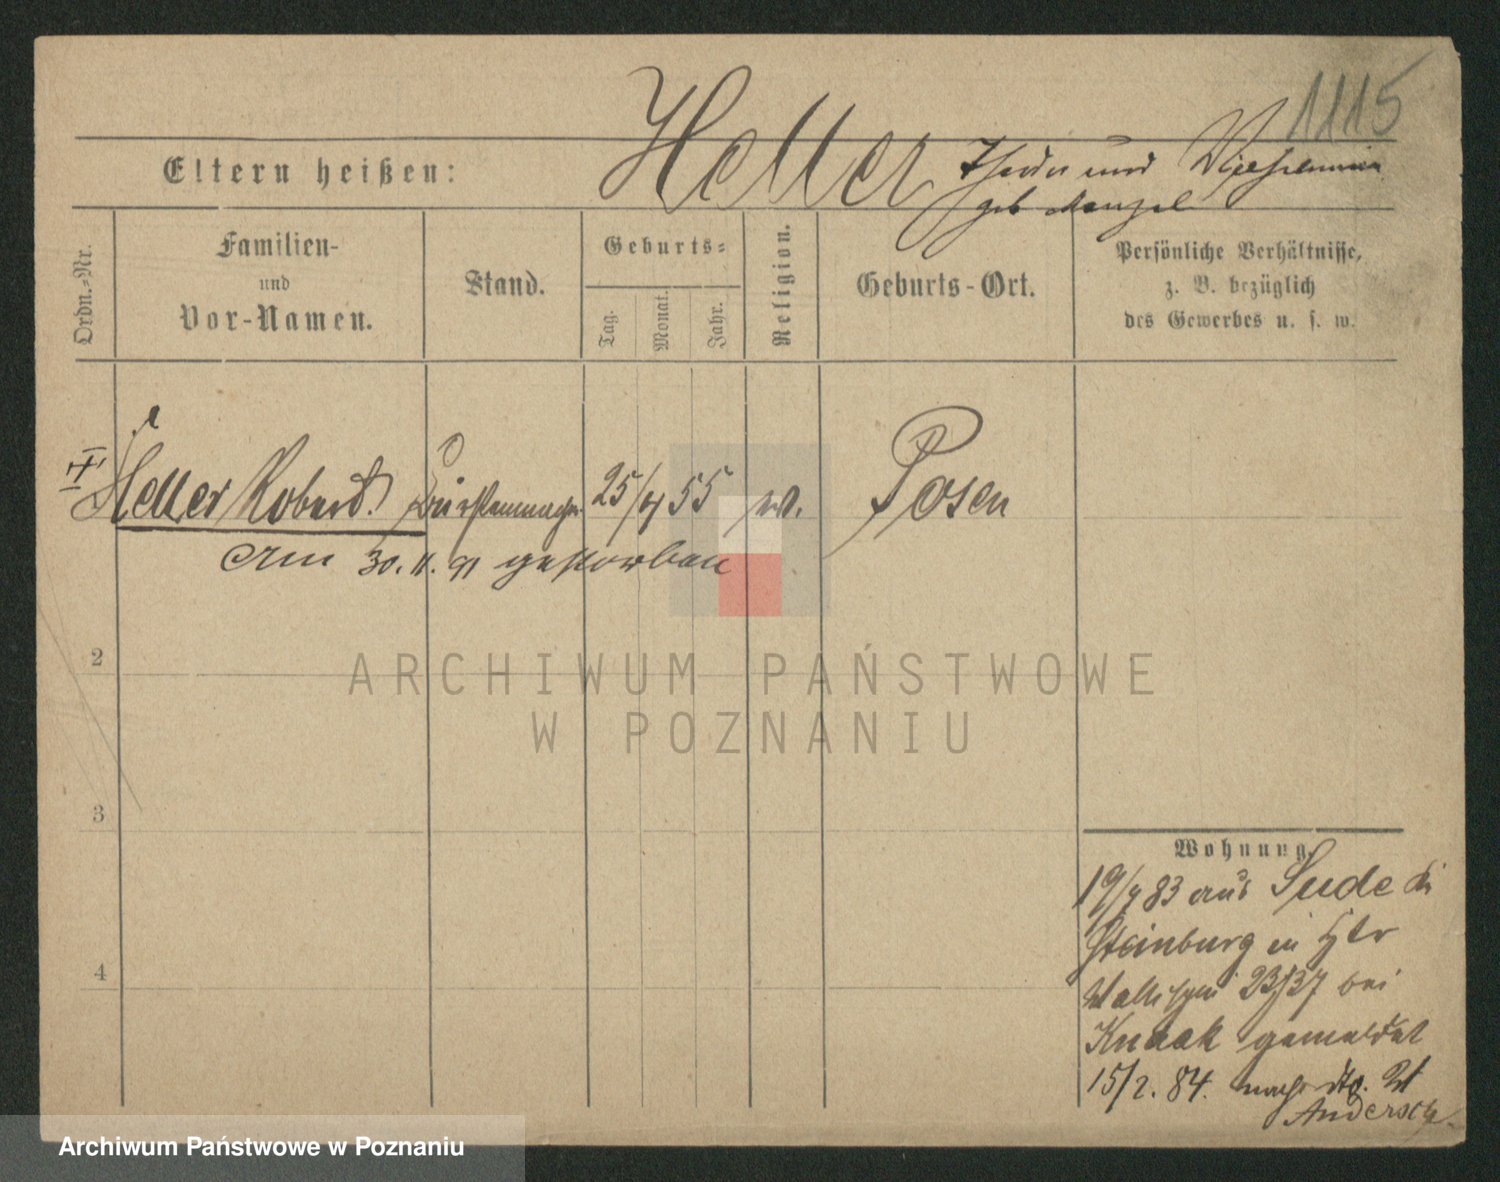 1115
Heller
Eltern heißen:
und
geb Menzel
Ordn.-Nr.
Familien-
und
Vor-Namen.
Stand.
Geburts-
Tag.
Monat.
Jahr.
Religion.
Geburts-Ort.
Persönliche Verhältnisse,
z. B. bezüglich
des Gewerbes u. s. w.
Heller Robert. 25/4 55 Posen
am 30. 11. 91 gestorben
2
3
4
ARCHIWUM PAŃSTWOWE
W POZNANIU
Wohnung.
19/7 83 aus Sude
Steinburg in
23/37 bei
Knaak gemeldet
15/2. 84. nach
Andersch
Archiwum Państwowe w Poznaniu